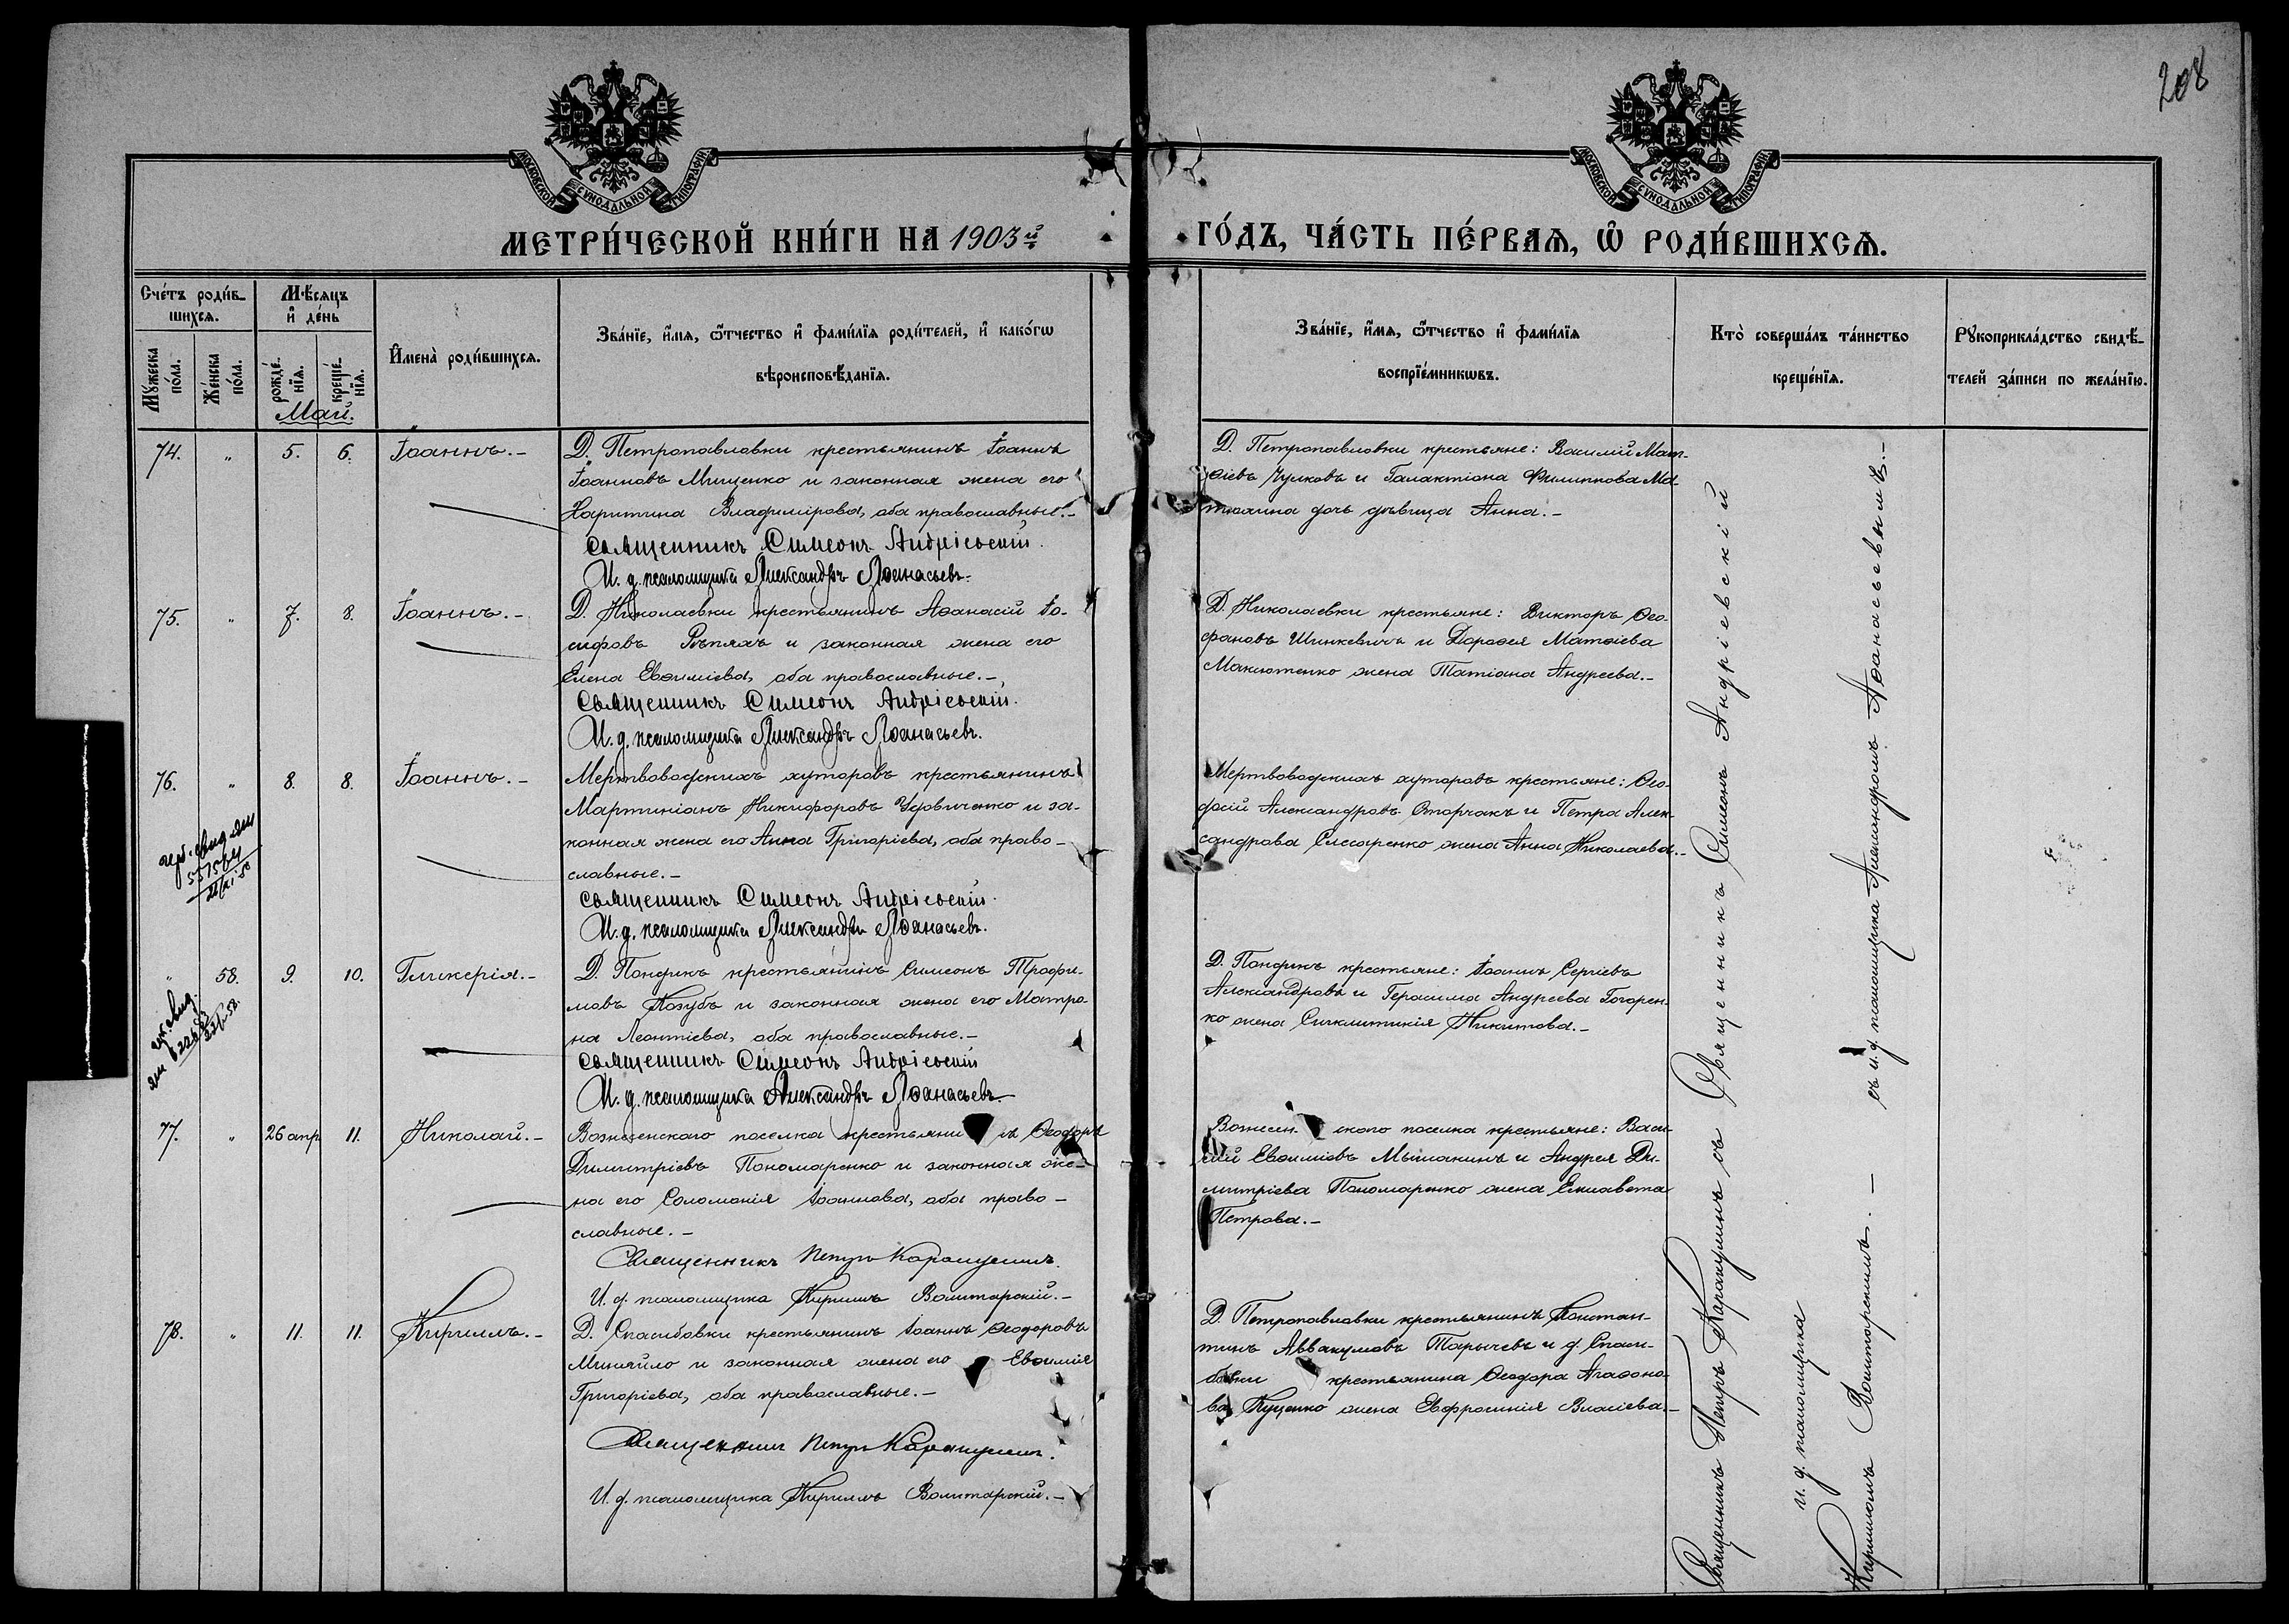 208
МОСКОВСКОЙ СУНОДАЛЬНОЙ ТИПОГРАФІИ
МОСКОВСКОЙ СУНОДАЛЬНОЙ ТИПОГРАФІИ
МЕТРИ́ЧЕСКОЙ КНИ́ГИ НА 1903й
ГО́ДЪ, ЧА́СТЬ ПЕ́РВАѦ, Ѡ РОДИ́ВШИХСѦ.
Сче́тъ роди́в-
шихсѧ.
Мꙋ́жеска по́ла.
Же́нска по́ла.
Мѣ́сѧцъ
и҆ де́нь
рожде́-
нїѧ.
креще́-
нїѧ.
И҆мена̀ роди́вшихсѧ.
Зва́нїе, и҆́мѧ, ѻ҆́тчество и҆ фами́лїѧ роди́телей, и҆ како́гѡ
вѣроисповѣ́данїѧ.
Зва́нїе, и҆́мѧ, ѻ҆́тчество и҆ фами́лїѧ
воспрїе́мникѡвъ.
Кто̀ соверша́лъ та́инство
креще́нїѧ.
Рꙋкоприкла́дство свидѣ́-
телей за́писи по жела́нїю.
Май.
74. " 5. 6. Іоаннъ.-
Д. Петропавловки крестьянинъ Іоаннъ
Іоанновъ Мищенко и законная жена его
Харитина Владимірова, оба православные.-
Священникъ Симеонъ Андріевскій.
И. д. псаломщика Александръ Аѳанасьевъ.
Д. Петропавловки крестьяне: Василій Мат-
ѳіевъ Чулковъ и Галактіона Филиппова Ма-
дочь дѣвица Анна.-
75. " 7. 8. Іоаннъ.-
Д. Николаевки крестьянинъ Аѳанасій Іо-
сифовъ Рѣпяхъ и законная жена его
Елена Евѳиміева, оба православные.-
Священникъ Симеонъ Андріевскій.
И. д. псаломщика Александръ Аѳанасьевъ.
Д. Николаевки крестьяне: Викторъ Ѳео-
фановъ Шинкевичъ и Дороѳея Матѳіева
Максютенко жена Татіана Андреева.-
76. " 8. 8. Іоаннъ.-
Мертвоводскихъ хуторовъ крестьянинъ
Мартиніанъ Никифоровъ и за-
конная жена его Анна Григоріева, оба право-
славные.-
Священникъ Симеонъ Андріевскій.
И. д. псаломщика Александръ Аѳанасьевъ.
Мертвоводскихъ хуторовъ крестьяне: Ѳео-
досій Александровъ и Петра Алек-
сандрова Слесаренко жена Анна Николаева.-
" 58. 9. 10. Гликерія.-
Д. Пондикъ крестьянинъ Симеонъ Трофи-
мовъ Козубъ и законная жена его Матро-
на Леонтіева, оба православные.-
Священникъ Симеонъ Андріевскій
И. д. псаломщика Александръ Аѳанасьевъ.
Д. Пондикъ крестьяне: Іоаннъ Сергіевъ
Александровъ и Герасима Андреева Гогорен-
ко жена Синклитикія Никитова.-
77. " 26 апр 11. Николай.-
Вознесенскаго поселка крестьянинъ Ѳеодоръ
Димитріевъ Пономаренко и законная же-
на его Соломонія Іоаннова, оба право-
славные.-
Священникъ Петръ Каракулинъ.
И. д. псаломщика Кириллъ
Вознесенскаго поселка крестьяне: Васи-
лій Евѳиміевъ Мышакинъ и Андрея Ди-
митріева Пономаренко жена Елисавета
Петрова.-
78. " 11. 11. Кириллъ.-
Д. Спасибовки крестьянинъ Іоаннъ Ѳеодоровъ
Миняйло и законная жена его Евѳимія
Григоріева, оба православные.-
Священникъ Петръ Каракулинъ.
И. д. псаломщика Кириллъ
Д. Петропавловки крестьянинъ Констан-
тинъ Аввакумовъ Тарычевъ и д. Спаси-
бовки крестьянина Ѳеодора Агаѳоно-
ва Куценко жена Евфросинія Власіева.-
Священникъ Симеонъ Андріевскій
съ и. д. псаломщика Александромъ Аѳанасьевымъ.-
Священникъ Петръ Каракулинъ съ
и. д. псаломщика
Кирилломъ